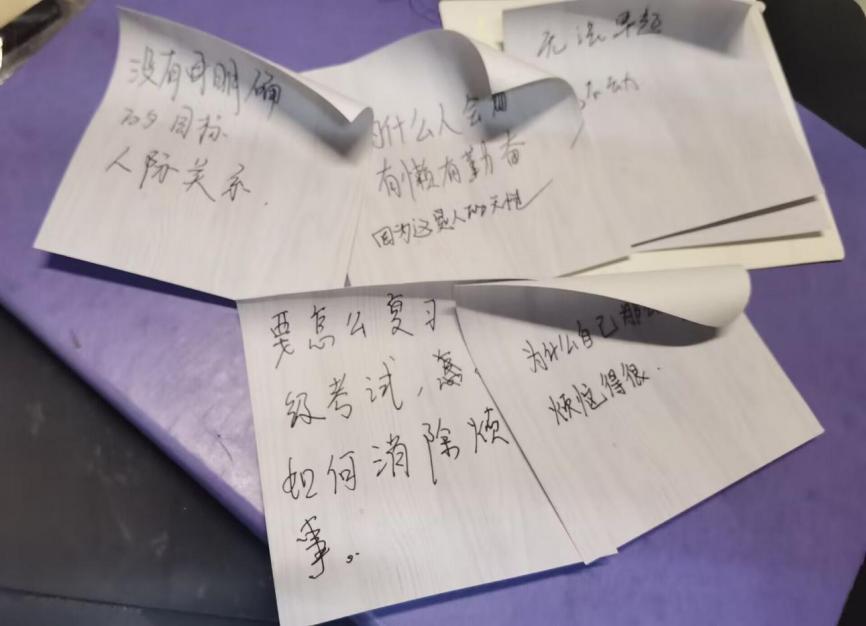 没有可明确
的目标
人际关系.
为什么人会
有懒有勤奋
因为这是人的天性
无法早起
要怎么复习
级考试,
如何消除烦
事。
为什么自己那
烦恼得很.